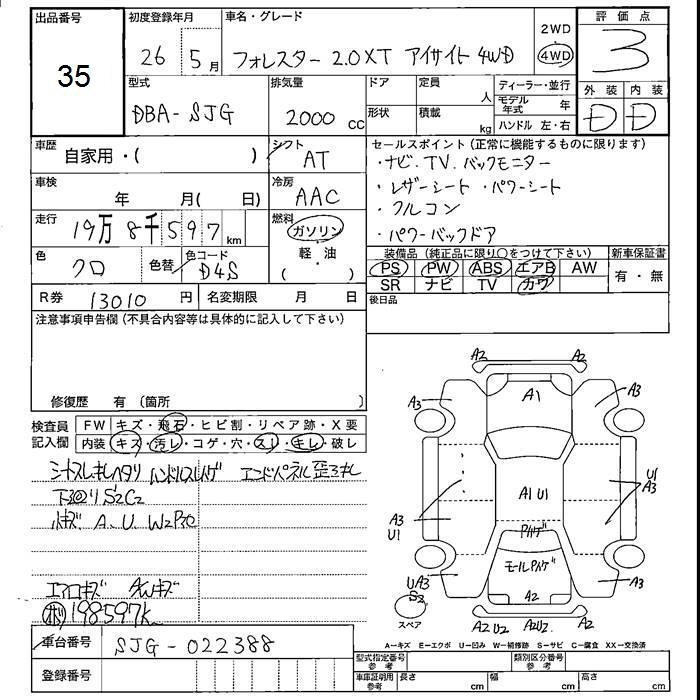 出品番号
35
初度登録年月
26 5月
車名・グレード
フォレスター 2.0XT アイサイト 4WD
2WD
4WD
評価点
3
外装 内装
D D
型式
DBA-SJG
排気量
2000 CC
ドア
形状
定員 人
積載 kg
ディーラー・並行
モデル年式 年
ハンドル 左・右
車歴
自家用・( )
シフト
AT
車検
年 月( 日)
冷房
AAC
走行
19万8千597 km
燃料
ガソリン
軽・油
( )
色
クロ
色替
色コード
D4S
R券 13010 円
名変期限 月 日
セールスポイント (正常に機能するものに限ります)
・ナビ.TV.バックモニター
・レザーシート ・パワーシート
・フルコン
・パワーバックドア
装備品 (純正品に限り○をつけて下さい)
PS PW ABS エアB AW
SR ナビ TV カワ
新車保証書
有・無
後日品
注意事項申告欄 (不具合内容等は具体的に記入して下さい)
修復歴 有 (箇所 )
検査員記入欄
FW キズ・飛石・ヒビ割・リペア跡・X要
内装 キズ・汚レ・コゲ・穴・スレ・キレ・破レ
シートスレキレヘタリ ハンドルスレハゲ
下回りS2C2
小キズ A、U W2P30
エアロキズ AWキズ
198597K
A2 A2
A3 A1 A3
A1 U1
U1
A3
A3
U1
Pハゲ
モールPハゲ
UA3
S2
A3
A2
スペア
A2 U2 A2U2 A2
A=キズ E=エクボ U=凹み W=補修跡 S=サビ C=腐食 XX=交換済
車台番号
SJG-022388
登録番号
型式指定番号 参考
類別区分番号 参考
車庫証明用 参考
長さ cm 幅 cm 高さ cm